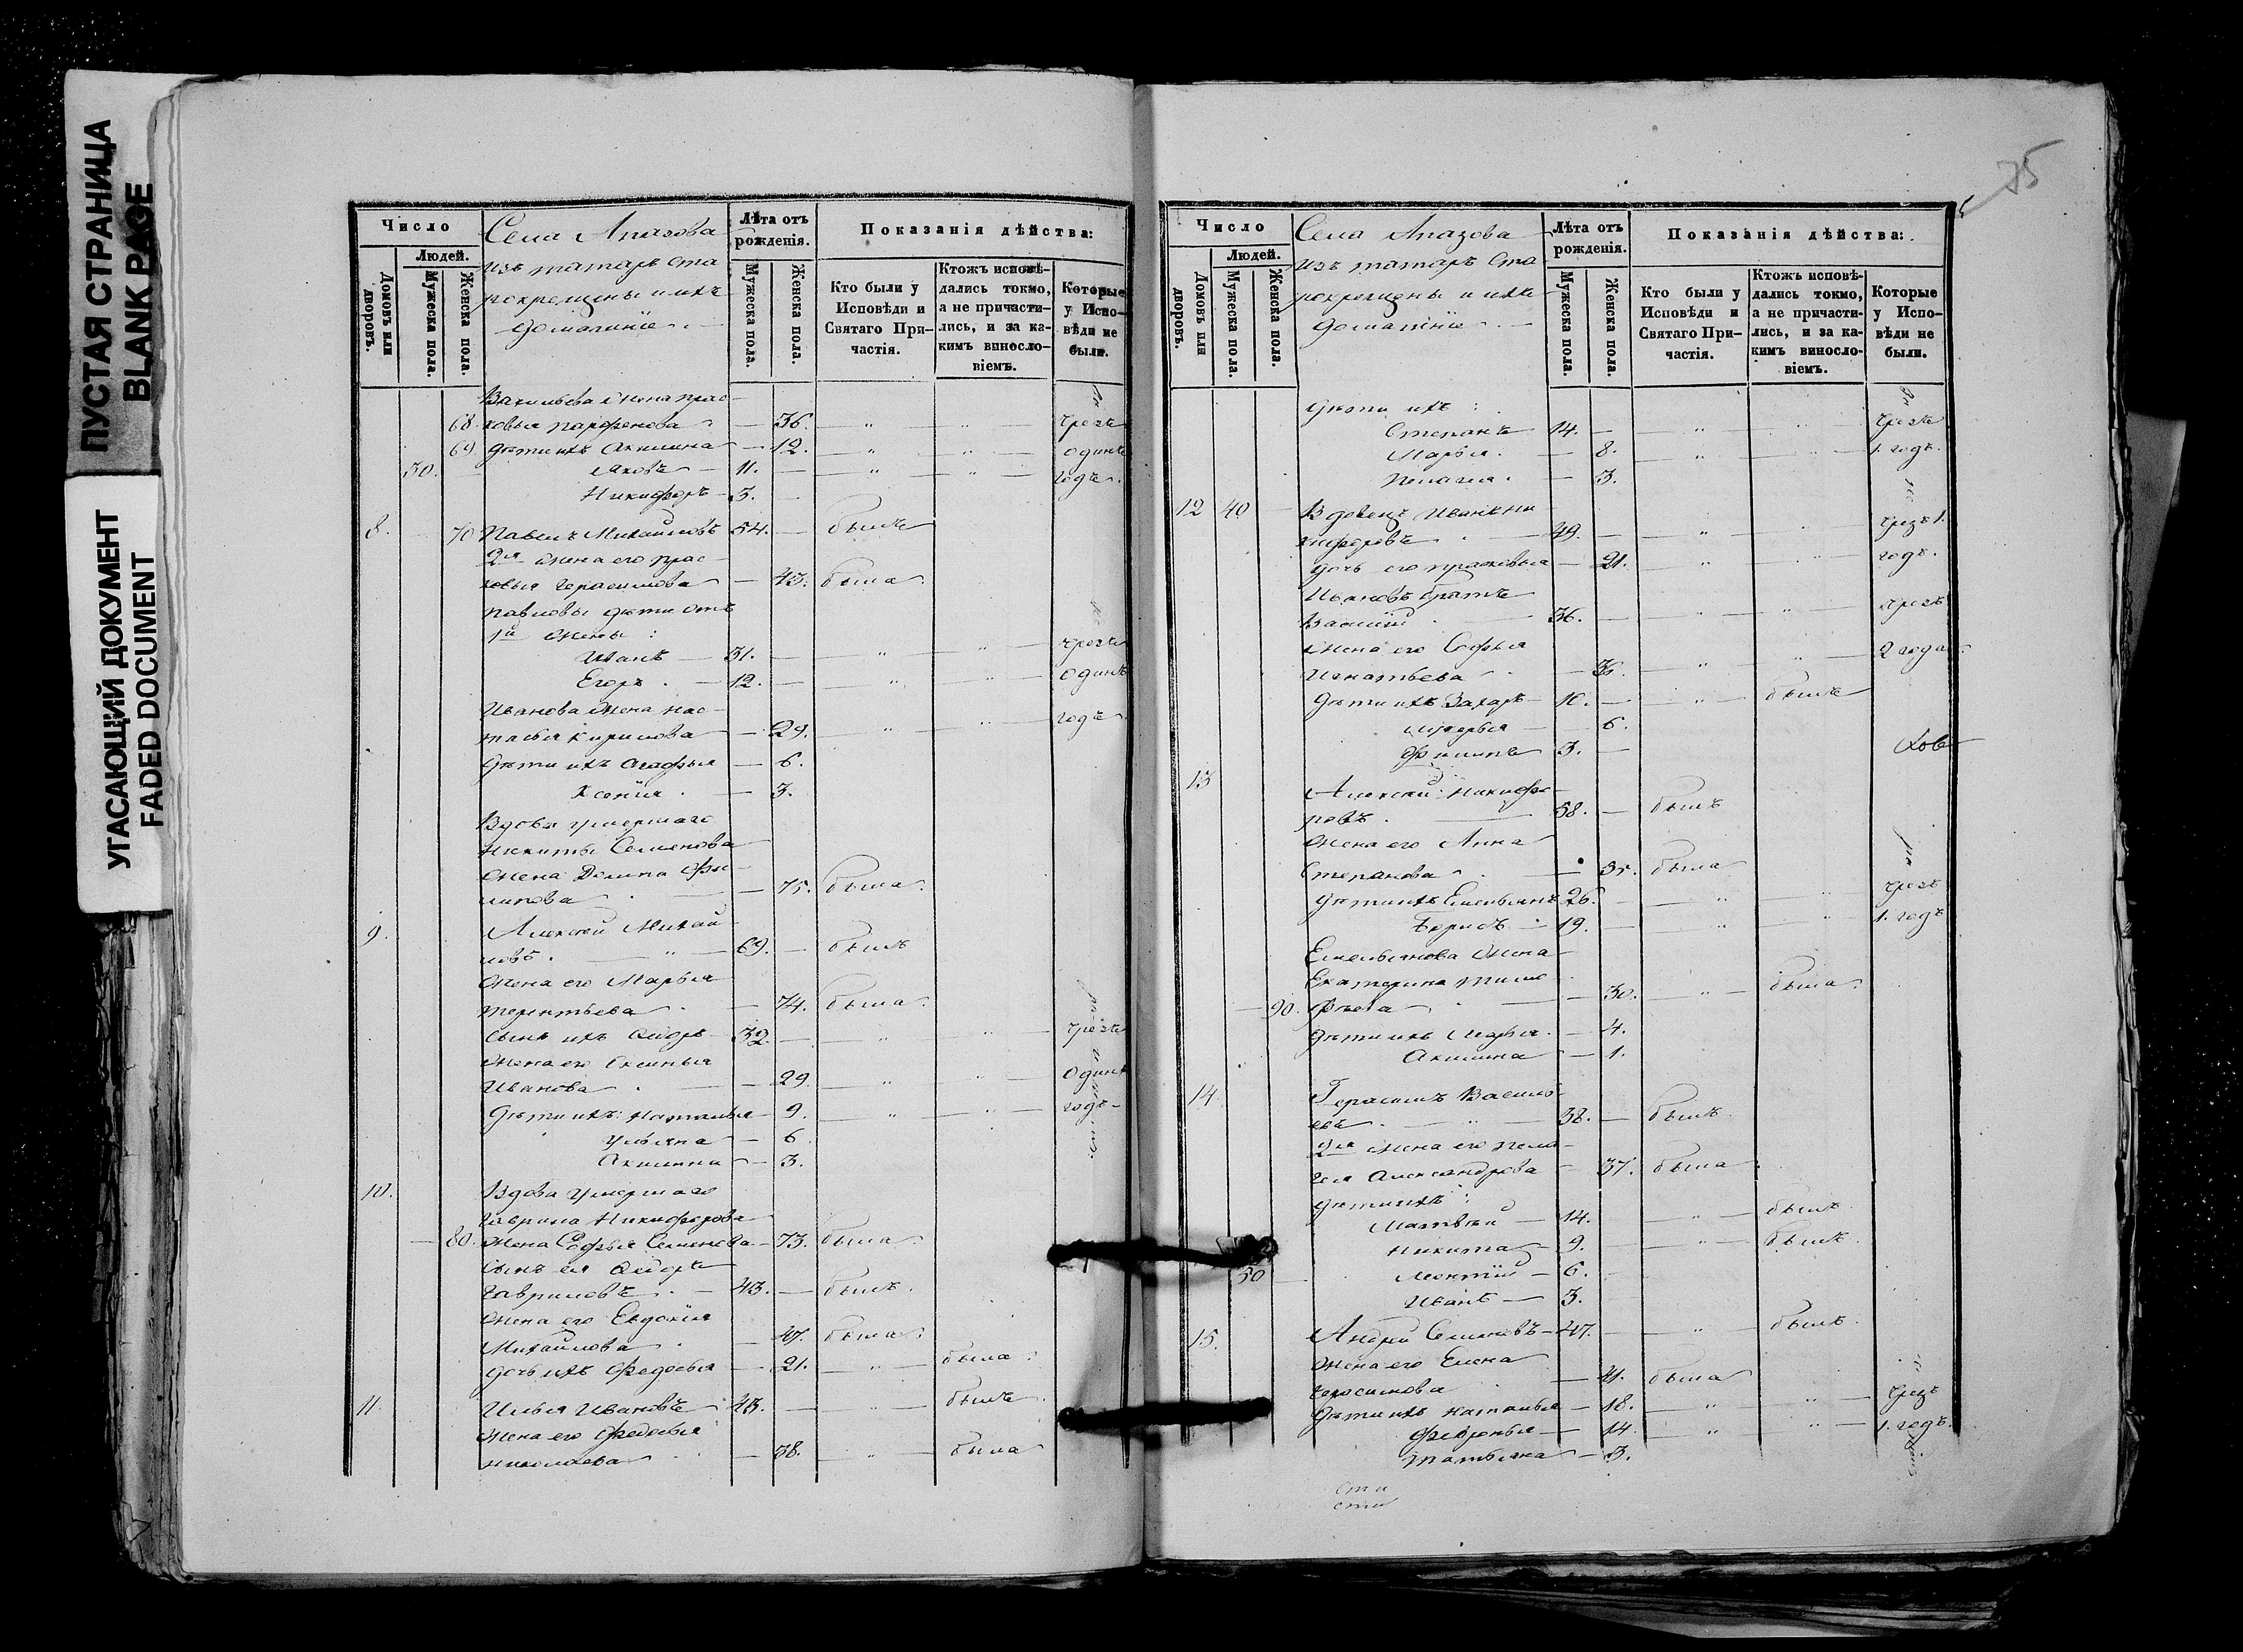 ПУСТАЯ СТРАНИЦА
BLANK PAGE
УГАСАЮЩИЙ ДОКУМЕНТ
FADED DOCUMENT
Число
Людей.
Домовъ или дворовъ.
Мужеска пола.
Женска пола.
Села Апазова
изъ татаръ ста
рокрещены и ихъ
домашніе
Лѣта отъ рожденія.
Мужеска пола.
Женска пола.
Показанія дѣйства:
Кто были у Исповѣди и Святаго При-частія.
Ктожъ исповѣ-дались токмо, а не причасти-лись, и за ка-кимъ виносло-віемъ.
Которые у Испо-вѣди не были.
Васильева жена Прас
68. ковья Парфенова — 36. чрезъ
69. дѣти ихъ Акилина — 12. одинъ
30. Яковъ — 11. — годъ.
Никифоръ — 3. —
8. 70 Павелъ Михайловъ 54. — былъ
2я жена его Прас
ковья Герасимова — 43. была
Павловы дѣти отъ
1й жены:
Иванъ — 31. — чрезъ
Егоръ . — 12. — одинъ
Иванова жена Нас
тасья Кирилова — 29. годъ
дѣти ихъ Агафья — 6.
Ксенія . — 3.
Вдова умершаго
Никиты Семенова
жена Домна Фи
липова — 75. была
9. Алексѣй Михай
ловъ . — 69. — былъ
жена его Марья
Терентьева — 74. была
сынъ ихъ Ѳедоръ 32. — чрезъ
жена его Аксинья
Иванова — 29. одинъ
дѣти ихъ: Наталья — 9. годъ
Ульяна — 6.
Акилина — 3.
10. Вдова умершаго
Гаврила Никифорова
80. жена Софья Семенова — 73. была
сынъ ея Ѳедоръ
Гавриловъ . — 43. — былъ.
жена его Евдокія
Михайлова — 47. была
дочь ихъ Федосья — 21. была
11. Илья Ивановъ 43. — былъ
жена его Федосья
Николаева — 38. была
75
Число
Людей.
Домовъ или дворовъ.
Мужеска пола.
Женска пола.
Села Апазова
изъ татаръ ста
рокрещены и ихъ
домашніе
Лѣта отъ рожденія.
Мужеска пола.
Женска пола.
Показанія дѣйства:
Кто были у Исповѣди и Святаго При-частія.
Ктожъ исповѣ-дались токмо, а не причасти-лись, и за ка-кимъ виносло-віемъ.
Которые у Испо-вѣди не были.
дѣти ихъ:
Степанъ 14. — чрезъ
Марья . — 8. 1. годъ.
Пелагея . — 3.
12 40 Вдовецъ Иванъ Ни
кифоровъ . — 49. — чрезъ 1.
дочь его Прасковья — 21. годъ.
Ивановъ братъ
Василій — 36. — чрезъ
жена его Софья
Игнатьева — 36. 2 года
дѣти ихъ Захаръ 10. — былъ
— 6.
Филипъ 3. —
13 Алексѣй Никифо
ровъ . — 58. — былъ
жена его Анна
Степанова — 35. была
дѣти ихъ Емельянъ 26. — чрезъ
Борисъ — 19. — 1. годъ
Емельянова жена
Екатерина Тимо
90. фѣева — 30. была
дѣти ихъ Марья — 4.
Акилина — 1.
14 Герасимъ Василь
евъ . — 38. — былъ
2я жена его Пела
гея Александрова — 37. была
дѣти ихъ:
Матвѣй — 14. былъ
Никита — 9. былъ
50 Леонтій — 6.
Иванъ — 3.
15. Андрей Семеновъ — 47. былъ
жена его Елена
Герасимова — 41. была
дѣти ихъ Наталья — 18. чрезъ
Февронья — 14. 1. годъ.
Татьяна — 3.